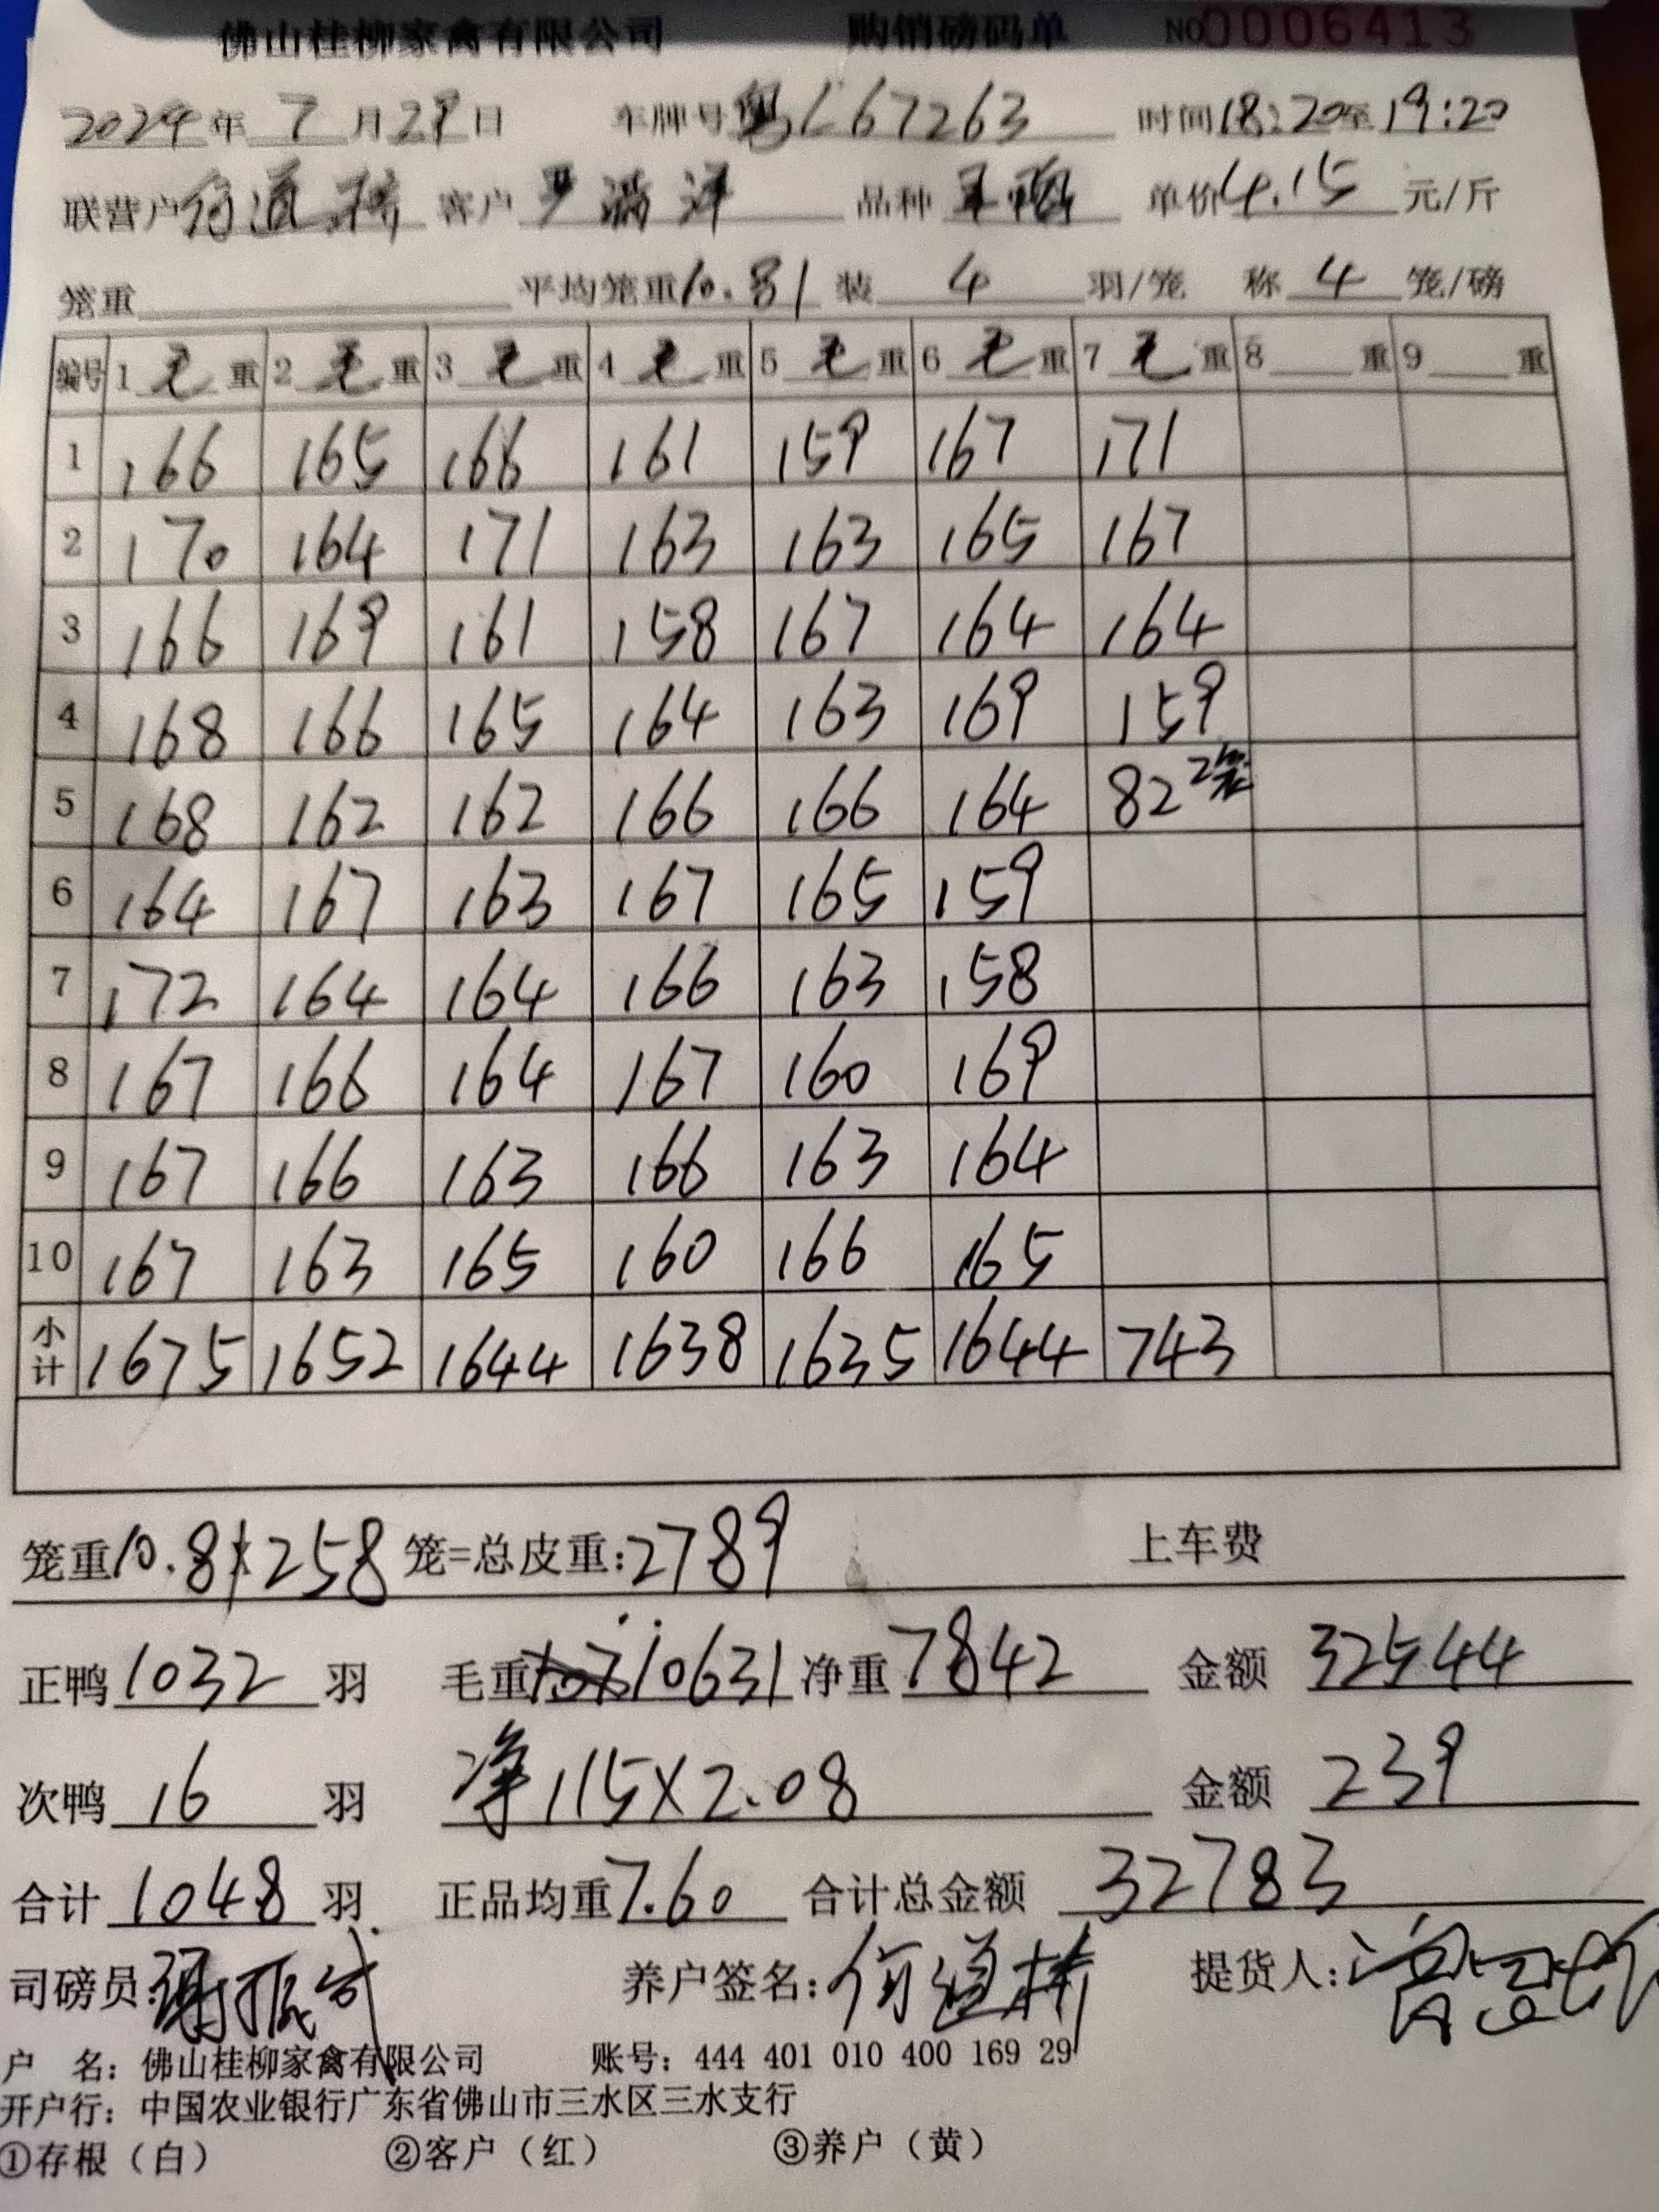 佛山桂柳家禽有限公司 购销磅码单 NO 0006413
2024年 7 月 29 日 车牌号 粤L67263 时间 18:20至 19:20
联营户 何道桥 客户 罗满洋 品种 单价 4.15 元/斤
笼重 平均笼重 10.81 装 4 羽/笼 称 4 笼/磅
编号 1 毛 重 2 毛 重 3 毛 重 4 毛 重 5 毛 重 6 毛 重 7 毛 重 8 重 9 重
1 166 165 166 161 159 167 171
2 170 164 171 163 163 165 167
3 166 169 161 158 167 164 164
4 168 166 165 164 163 169 159
5 168 162 162 166 166 164 82 2笼
6 164 167 163 167 165 159
7 172 164 164 166 163 158
8 167 166 164 167 160 169
9 167 166 163 166 163 164
10 167 163 165 160 166 165
小计 1675 1652 1644 1638 1635 1644 743
笼重 10.81x258 笼=总皮重: 2789 上车费
正鸭 1032 羽 毛重 10631 净重 7842 金额 32544
次鸭 16 羽 净 115X2.08 金额 239
合计 1048 羽 正品均重 7.60 合计总金额 32783
司磅员: 养户签名: 何道桥 提货人:
户 名: 佛山桂柳家禽有限公司 账号: 444 401 010 400 169 29
开户行: 中国农业银行广东省佛山市三水区三水支行
①存根（白） ②客户（红） ③养户（黄）